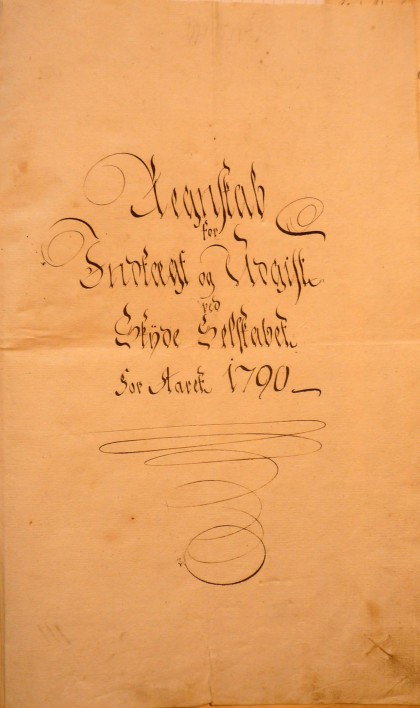 Regnskab
for
Indtægt og Udgift
ved
Skÿde Selskabet
for Aaret 1790